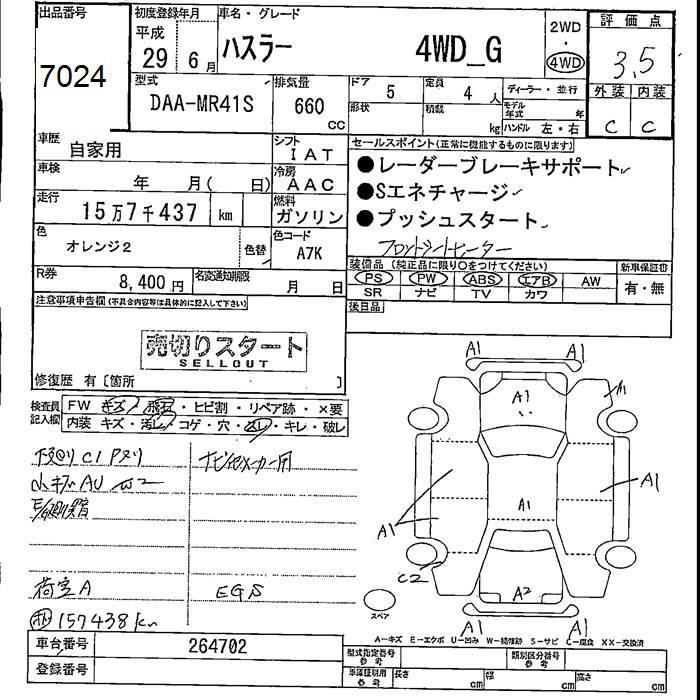 出品番号
7024
初度登録年月
平成
29年 6月
車名・グレード
ハスラー 4WD_G
2WD
・
4WD
評価点
3.5
外装 内装
C C
型式
DAA-MR41S
排気量
660
cc
ドア 5
定員 4人
形状
積載 kg
ディーラー・並行
モデル年式 年
ハンドル 左・右
車歴
自家用
シフト
IAT
車検
年 月( 日)
冷房
AAC
走行
15万7千437 km
燃料
ガソリン
色
オレンジ2
色替
色コード
A7K
R券
8,400円
名変通知期限
月 日
セールスポイント(正常に機能するものに限ります)
●レーダーブレーキサポート
●Sエネチャージ
●プッシュスタート
フロントシートヒーター
装備品(純正品に限り○をつけてください)
PS PW ABS エアB AW
SR ナビ TV カワ
新車保証書
有・無
後日品
注意事項申告欄(不具合内容等は具体的に記入して下さい)
売切りスタート
SELLOUT
修復歴 有〔箇所 〕
検査員記入欄
FW キズ・飛石・ヒビ割・リペア跡・×要
内装 キズ・汚レ・コゲ・穴・スレ・キレ・破レ
下廻りC1 Pヌリ
小キズAU W2
荷室A
EGS
157438km
A1 A1
A1
A1
A1
A1
A1
C2
A2
A1 A1
スペア
A-キズ E-エクボ U-凹み W-補修跡 S-サビ C-腐食 XX-交換済
車台番号
264702
登録番号
型式指定番号
参考
類別区分番号
参考
車庫証明用
参考
長さ cm
幅 cm
高さ cm